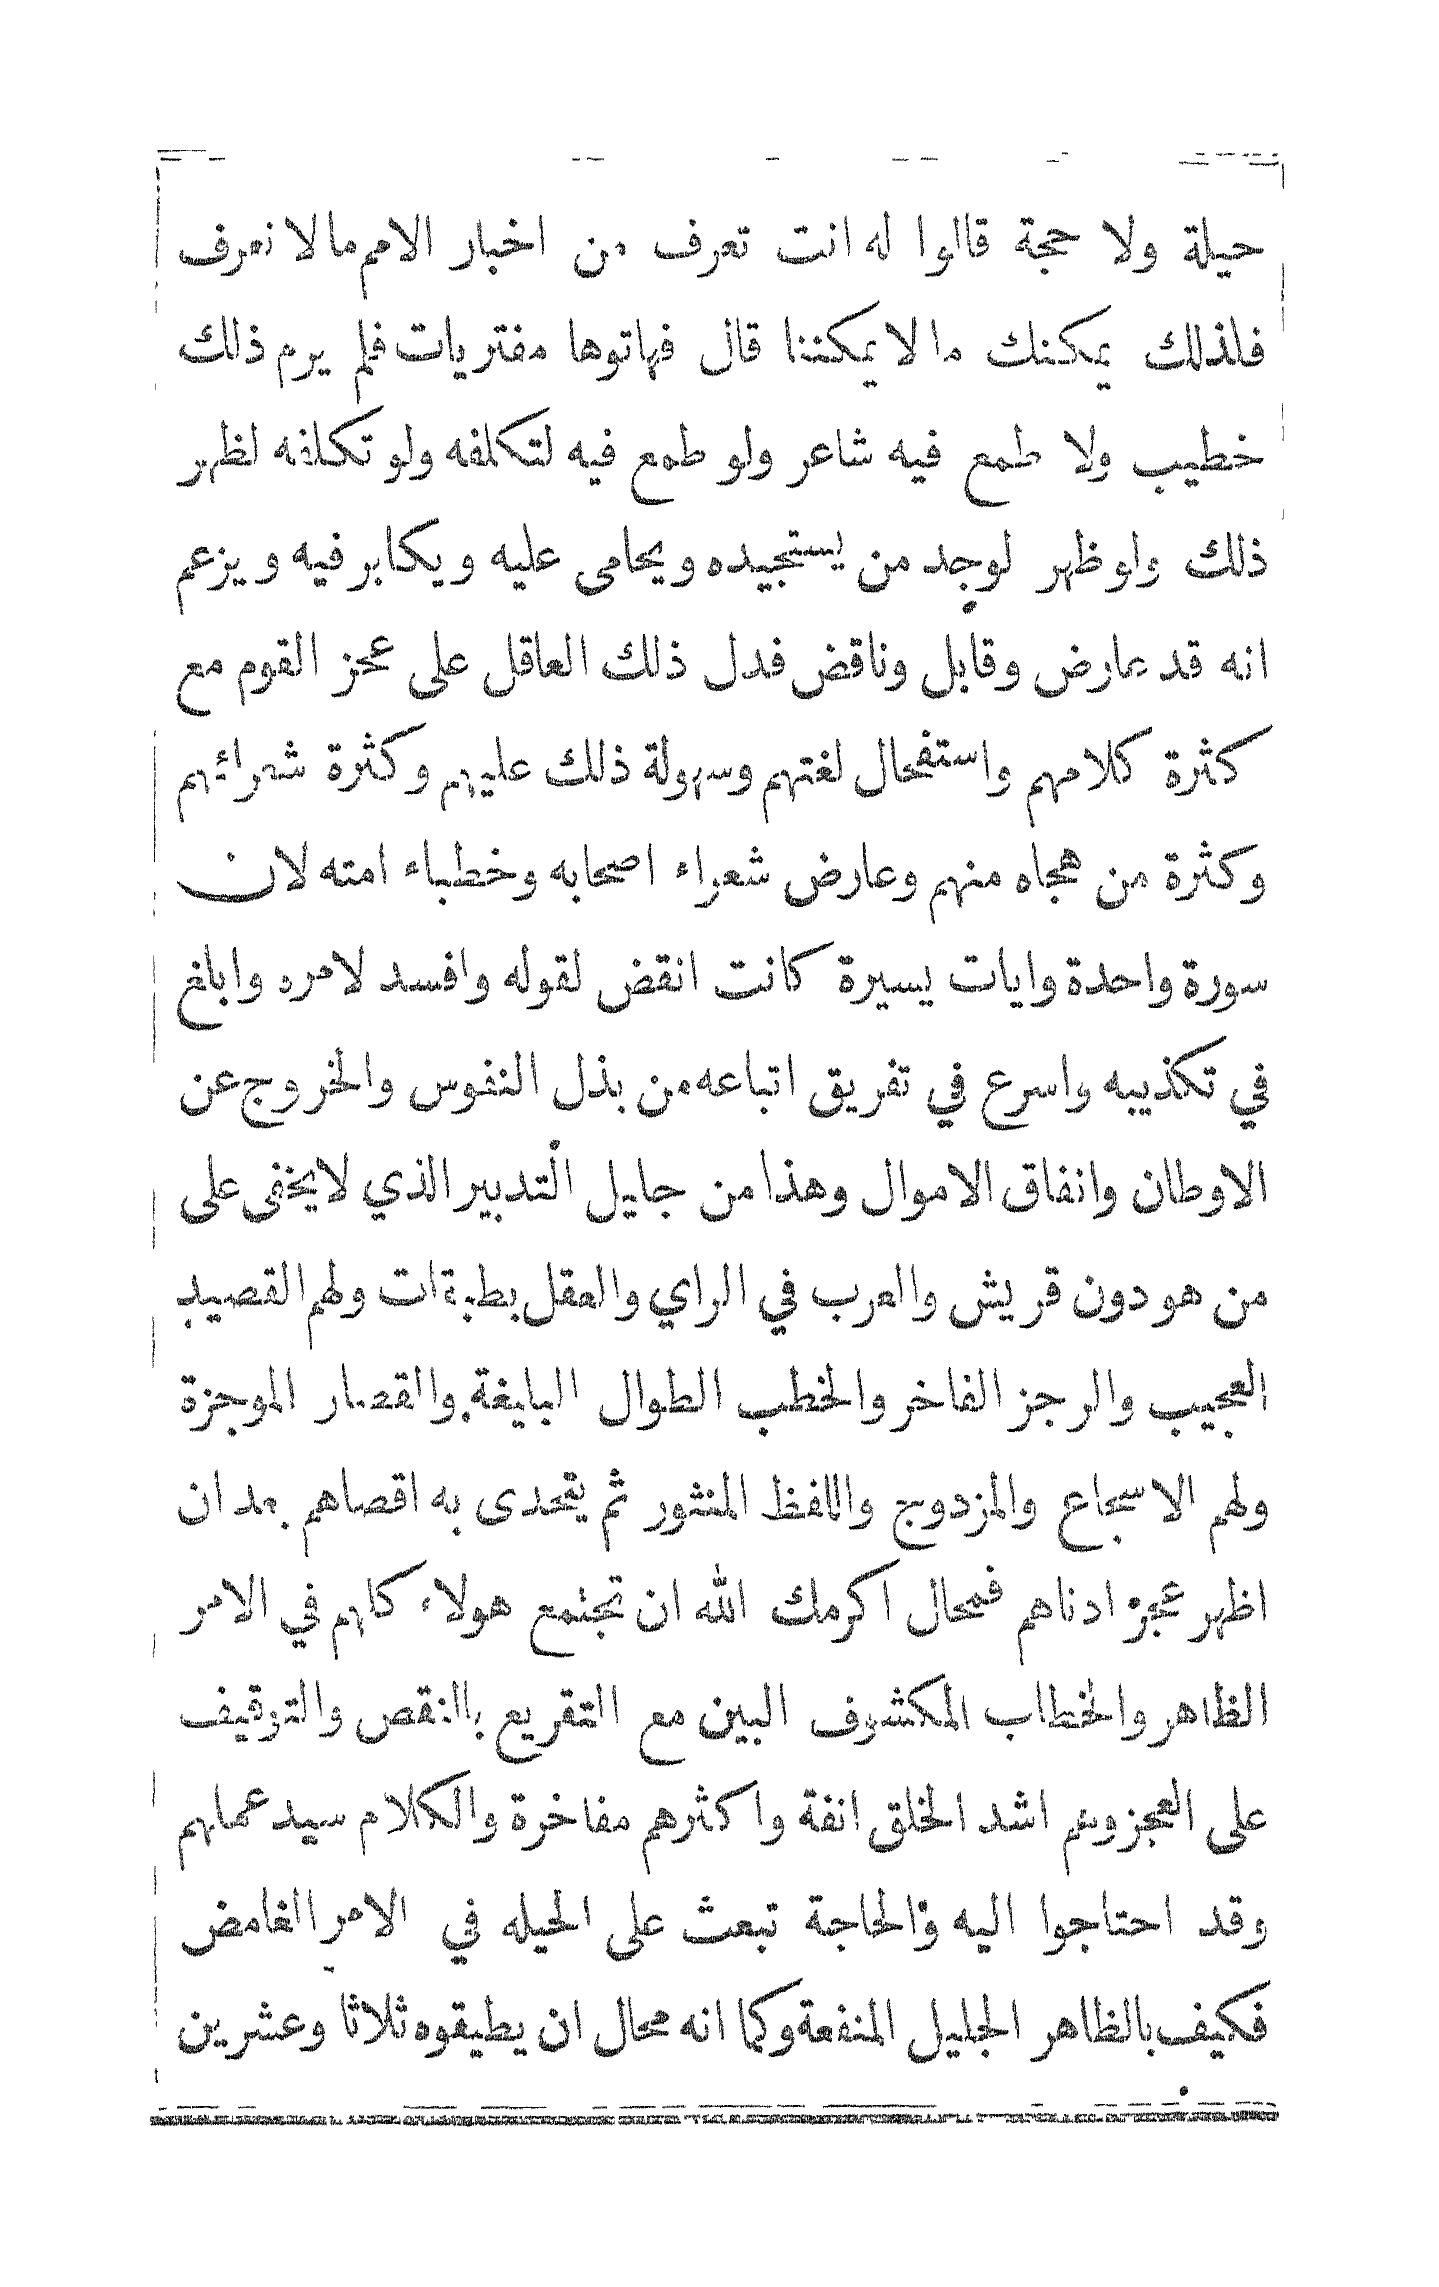 حيلة ولا حجة قالوا له انت تعرف من اخبار الامم مالا نعرف
فلذلك يمكنك ما لا يمكننا قال فهاتوها مفتريات فلم يرم ذلك
خطيب ولا طمع فيه شاعر ولو طمع فيه لتكلفه ولو تكلفه لظهر
ذلك ولو ظهر لوجد من يستجيده ويحامى عليه ويكابر فيه ويزعم
انه قد عارض وقابل وناقض فدل ذلك العاقل على عجز القوم مع
كثرة كلامهم واستفحال لغتهم وسهولة ذلك عليهم وكثرة شعرائهم
وكثرة من هجاه منهم وعارض شعراء اصحابه وخطباء امته لان
سورة واحدة وايات يسيرة كانت انقض لقوله وافسد لامره وابلغ
في تكذيبه واسرع في تفريق اتباعه من بذل النفوس والخروج عن
الاوطان وانفاق الاموال وهذا من جليل التدبير الذي لا يخفى على
من هو دون قريش والعرب في الراي والعقل بطبقات ولهم القصيد
العجيب والرجز الفاخر والخطب الطوال البليغة والقصار الموجزة
ولهم الاسجاع والمزدوج واللفظ المنثور ثم يتحدى به اقصاهم بعد ان
اظهر عجز ادناهم فمحال اكرمك الله ان تجتمع هولاء كلهم في الامر
الظاهر والخطاب المكشوف البين مع التقريع بالنقص والتوقيف
على العجز وهم اشد الخلق انفة واكثرهم مفاخرة والكلام سيد عملهم
وقد احتاجوا اليه والحاجة تبعث على الحيله في الامر الغامض
فكيف بالظاهر الجليل المنفعة وكما انه محال ان يطيقوه ثلاثا وعشرين